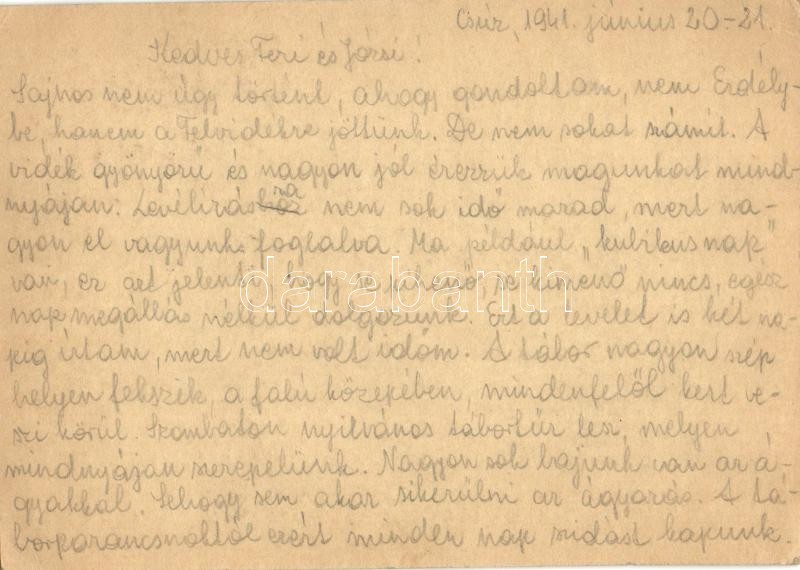 Csúz, 1941. június 20-21.
Kedves Feri és Józsi!
Sajnos nem úgy történt, ahogy gondoltam, nem Erdély-
be, hanem a Felvidékre jöttünk. De nem sokat számít. A
vidék gyönyörű és nagyon jól érezzük magunkat mind-
nyájan. Levélírásra nem sok idő marad, mert na-
gyon el vagyunk foglalva. Ma például „kubikus nap”
van, ez azt jelenti, hogy se pihenő, se kimenő nincs, egész
nap megállás nélkül dolgozunk. Ezt a levelet is két na-
pig írtam, mert nem volt időm. A tábor nagyon szép
helyen fekszik, a falú közepében, mindenfelől kert ve-
szi körül. Szombaton nyilvános tábortűz lesz, melyen
mindnyájan szerepelünk. Nagyon sok bajunk van az á-
gyakkal. Sehogy sem akar sikerülni az ágyazás. A tá-
borparancsnoktól ezért minden nap szidást kapunk.
darabanth